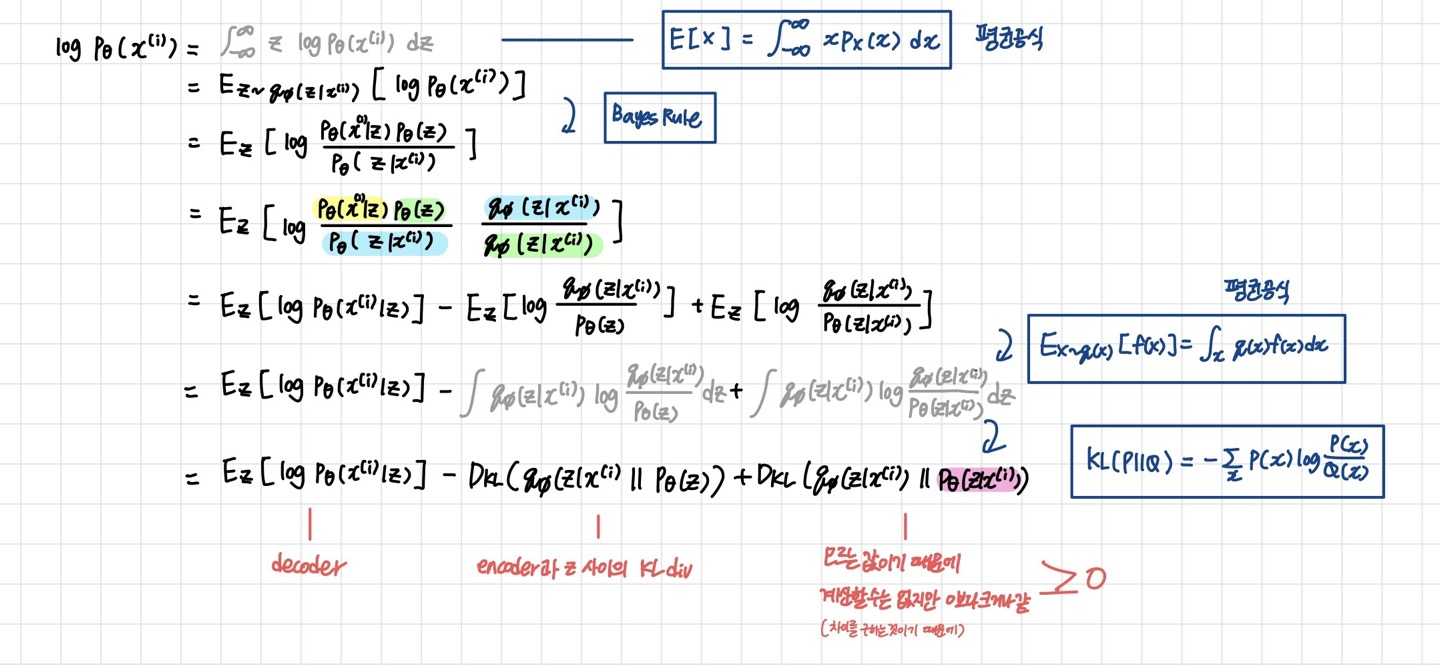 log Pθ(x⁽ⁱ⁾) = ∫₋∞^∞ z log Pθ(x⁽ⁱ⁾) dz
E[x] = ∫₋∞^∞ x Px(x) dx 평균공식
= E_{z~qφ(z|x⁽ⁱ⁾)} [log Pθ(x⁽ⁱ⁾)]
Bayes Rule
= Ez [log (Pθ(x⁽ⁱ⁾|z) Pθ(z)) / (Pθ(z|x⁽ⁱ⁾))]
= Ez [log (Pθ(x⁽ⁱ⁾|z) Pθ(z)) / (Pθ(z|x⁽ⁱ⁾)) (qφ(z|x⁽ⁱ⁾)) / (qφ(z|x⁽ⁱ⁾))]
= Ez [log Pθ(x⁽ⁱ⁾|z)] - Ez [log (qφ(z|x⁽ⁱ⁾)) / (Pθ(z))] + Ez [log (qφ(z|x⁽ⁱ⁾)) / (Pθ(z|x⁽ⁱ⁾))]
평균공식
E_{x~q(x)} [f(x)] = ∫ₓ q(x)f(x)dx
= Ez [log Pθ(x⁽ⁱ⁾|z)] - ∫ qφ(z|x⁽ⁱ⁾) log (qφ(z|x⁽ⁱ⁾)) / (Pθ(z)) dz + ∫ qφ(z|x⁽ⁱ⁾) log (qφ(z|x⁽ⁱ⁾)) / (Pθ(z|x⁽ⁱ⁾)) dz
KL(P||Q) = -Σₓ P(x) log (P(x)) / (Q(x))
= Ez [log Pθ(x⁽ⁱ⁾|z)] - DKL(qφ(z|x⁽ⁱ⁾ || Pθ(z)) + DKL(qφ(z|x⁽ⁱ⁾) || Pθ(z|x⁽ⁱ⁾))
decoder
encoder과 z 사이의 KL div
모르는 값이기 때문에
계산할수는 없지만 0보다크거나같
(차이를 구하는것이기 때문에)
≥ 0